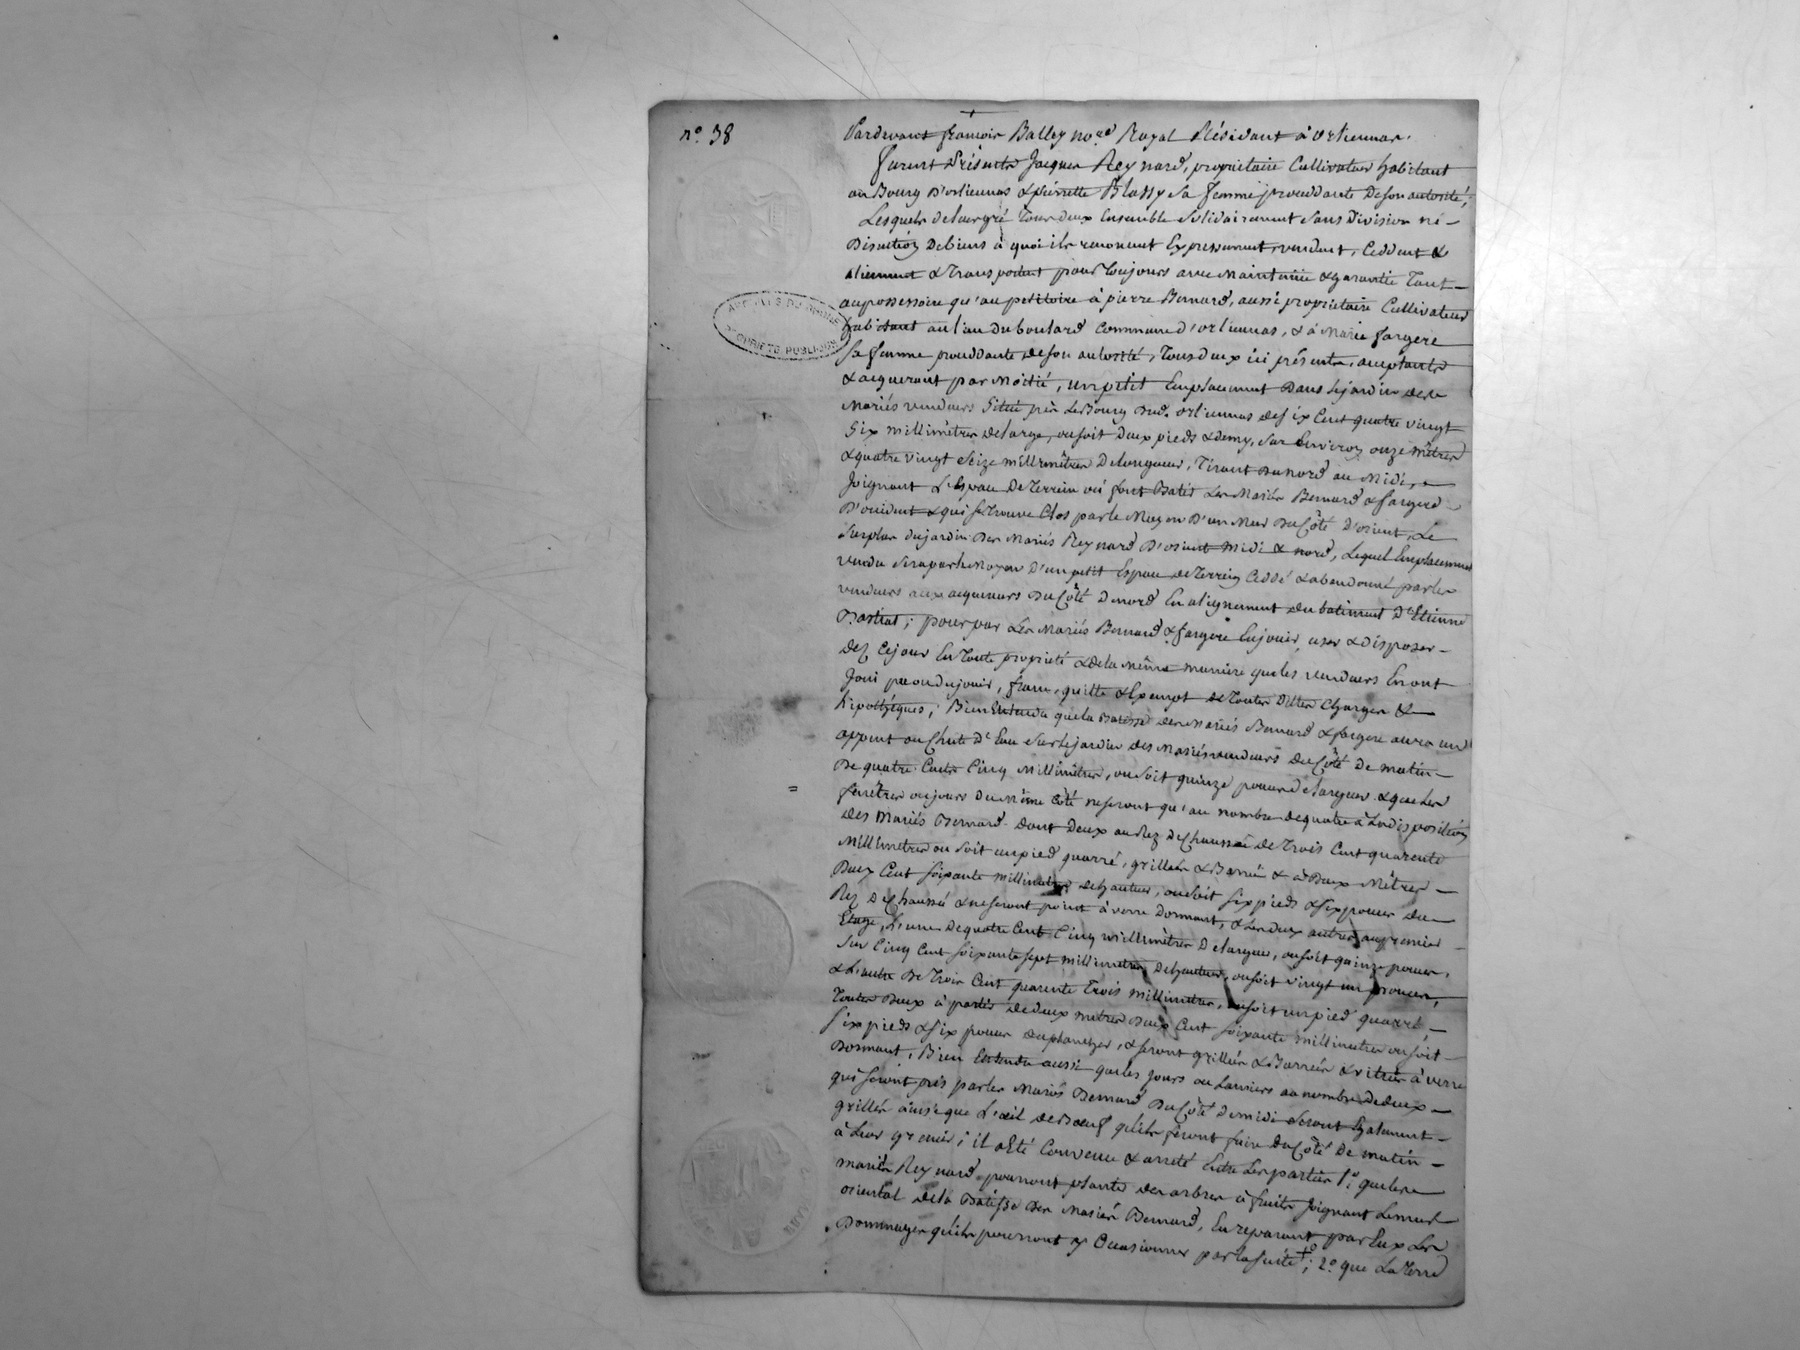 n.o 38
Pardevant françois Balley no.re Royal Résidant à orliennas.
furent Présents Jacques Reynard, propriétaire Cultivateur habitant
au Bourg D'orliennas & pierrette Blassy Sa femme procédante De son autorité;
Lesquels de leur gré tous deux Ensemble Solidairement Sans Division ni
Discution De biens à quoi ils renoncent Expressement, vendent, Ceddent &
aliennent & Transportent pour toujours avec Maintenüe & garantie Tant
au possessoire qu'au petitoire à pierre Bernard, aussi propriétaire Cultivateur
habitant au lieu du boulard Commune d'orliennas, & à Marie fargere
Sa femme procédante de son autorité, Tous deux ici présents, acceptants
& acquerant par Moitié, un petit Emplacement Dans le jardin des
Mariés vendeurs Situé près Le Bourg Dud. orliennas de Six Cent quatre vingt
Six millimètres de large, ou soit Deux pieds & demy, Sur Environ onze mètres
& quatre vingt Seize millimètres De longueur, Tirant Du Nord au Midi,
Joignant L'Espace De Terrein où font Batir Les Mariés Bernard & fargere
D'occident & qui Se trouve Clos par le Moyen D'un Mur Du Côté d'orient, Le
Surplus du jardin Des Mariés Reynard D'orient Midi & nord, Lequel Emplacement
vendu Sera par le Moyen D'un petit Espace de Terrein Ceddé & abandonné par les
vendeurs aux acquereurs Du Côté De nord En alignement du batiment D'Etienne
; pour par Les Mariés Bernard & fargere En jouir, user & Disposer
Dez Ce jour En Toute propriété & de la Même maniere que les vendeurs En ont
Joui pu ou du jouir, franc, quitte & Exempt de Toutes Dettes Charges &
hipothéques; Bien Entendu que la Batisse des Mariés Bernard & fargere aura un
appent ou Chute D'Eau Sur le jardin des Mariés vendeurs Du Côté De matin
De quatre Cents Cinq Millimètres, ou Soit quinze pouces De largeur & que Les
fenêtres toujours Du Même Côté ne seront qu'au nombre de quatre à La disposition
des Mariés Bernard Dont Deux au Rez De Chaussée De Trois Cent quarante
Millimetres ou Soit un pied quarré, grillées & Barrées & à Deux Mêtres
Deux Cent Soixante millimetres de hauteur, ou Soit Six pieds & Six pouces du
Rez De Chaussée & ne seront point à verre Dormant, & Les deux autres au premier
Etage, L'une De quatre Cent Cinq millimètres De largeur, ou soit quinze pouces,
Sur Cinq Cent Soixante Sept millimetres De hauteur, ou soit vingt un pouces,
& L'autre De Trois Cent quarente Trois millimetres, ou soit un pied quarré
Toutes Deux à partir de deux metres Deux Cent Soixante millimetres ou soit
Six pieds & Six pouces du plancher, & seront grillées & Barrées & vitrées à verre
Dormant, Bien Entendu aussi que les jours ou Larmiers au nombre De deux
qui seront pris par les Mariés Bernard Du Côté De midi seront Egalement
grillés ainsi que L'œil de Bœuf qu'ils feront faire Du Côté De matin
à Leur grenier; il a Eté Convenu & arreté Entre Les parties 1.o que Les
mariés Reynard pourront planter des arbres à fruits Joignant Le mur
oriental de la Batisse Des Mariés Bernard, En reparant par Eux Les
Dommages qu'ils pourront y Occasionner par la Suite +; 2.o que La Terre
ARCHIVES DU RHÔNE
ECRITS PUBLICS